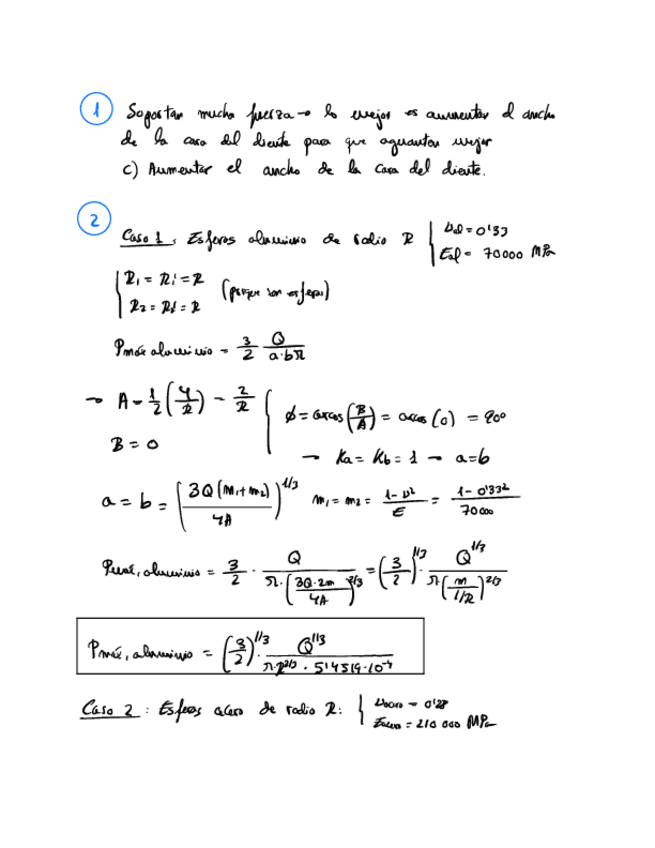 1 Soportan mucha fuerza → lo mejor es aumentar el ancho
de la cara del diente para que aguanten mejor
c) Aumentar el ancho de la cara del diente.
2
Caso 1: Esferas aluminio de radio R { νal = 0'33
Eal = 70000 MPa
{ R1 = R1' = R
R2 = R2' = R (porque son esferas)
Pmáx aluminio = 3/2 Q/(a·b·π)
→ A = 1/2 (4/R) = 2/R { ϕ = arcos(B/A) = arcos(0) = 90º
B = 0 → Ka = Kb = 1 → a = b
a = b = (3Q(m1+m2)/4A)^1/3 m1 = m2 = (1-ν²)/E = (1-0'33²)/70000
Pmáx, aluminio = 3/2 · Q/(π·(3Q·2m/4A)^2/3) = (3/2)^1/3 · Q^1/3/(π(m/(1/R))^2/3)
Pmáx, aluminio = (3/2)^1/3 · Q^1/3/(π·R^2/3 · 5'4519·10^-4)
Caso 2: Esferas acero de radio R: { νacero = 0'28
Eacero = 210 000 MPa